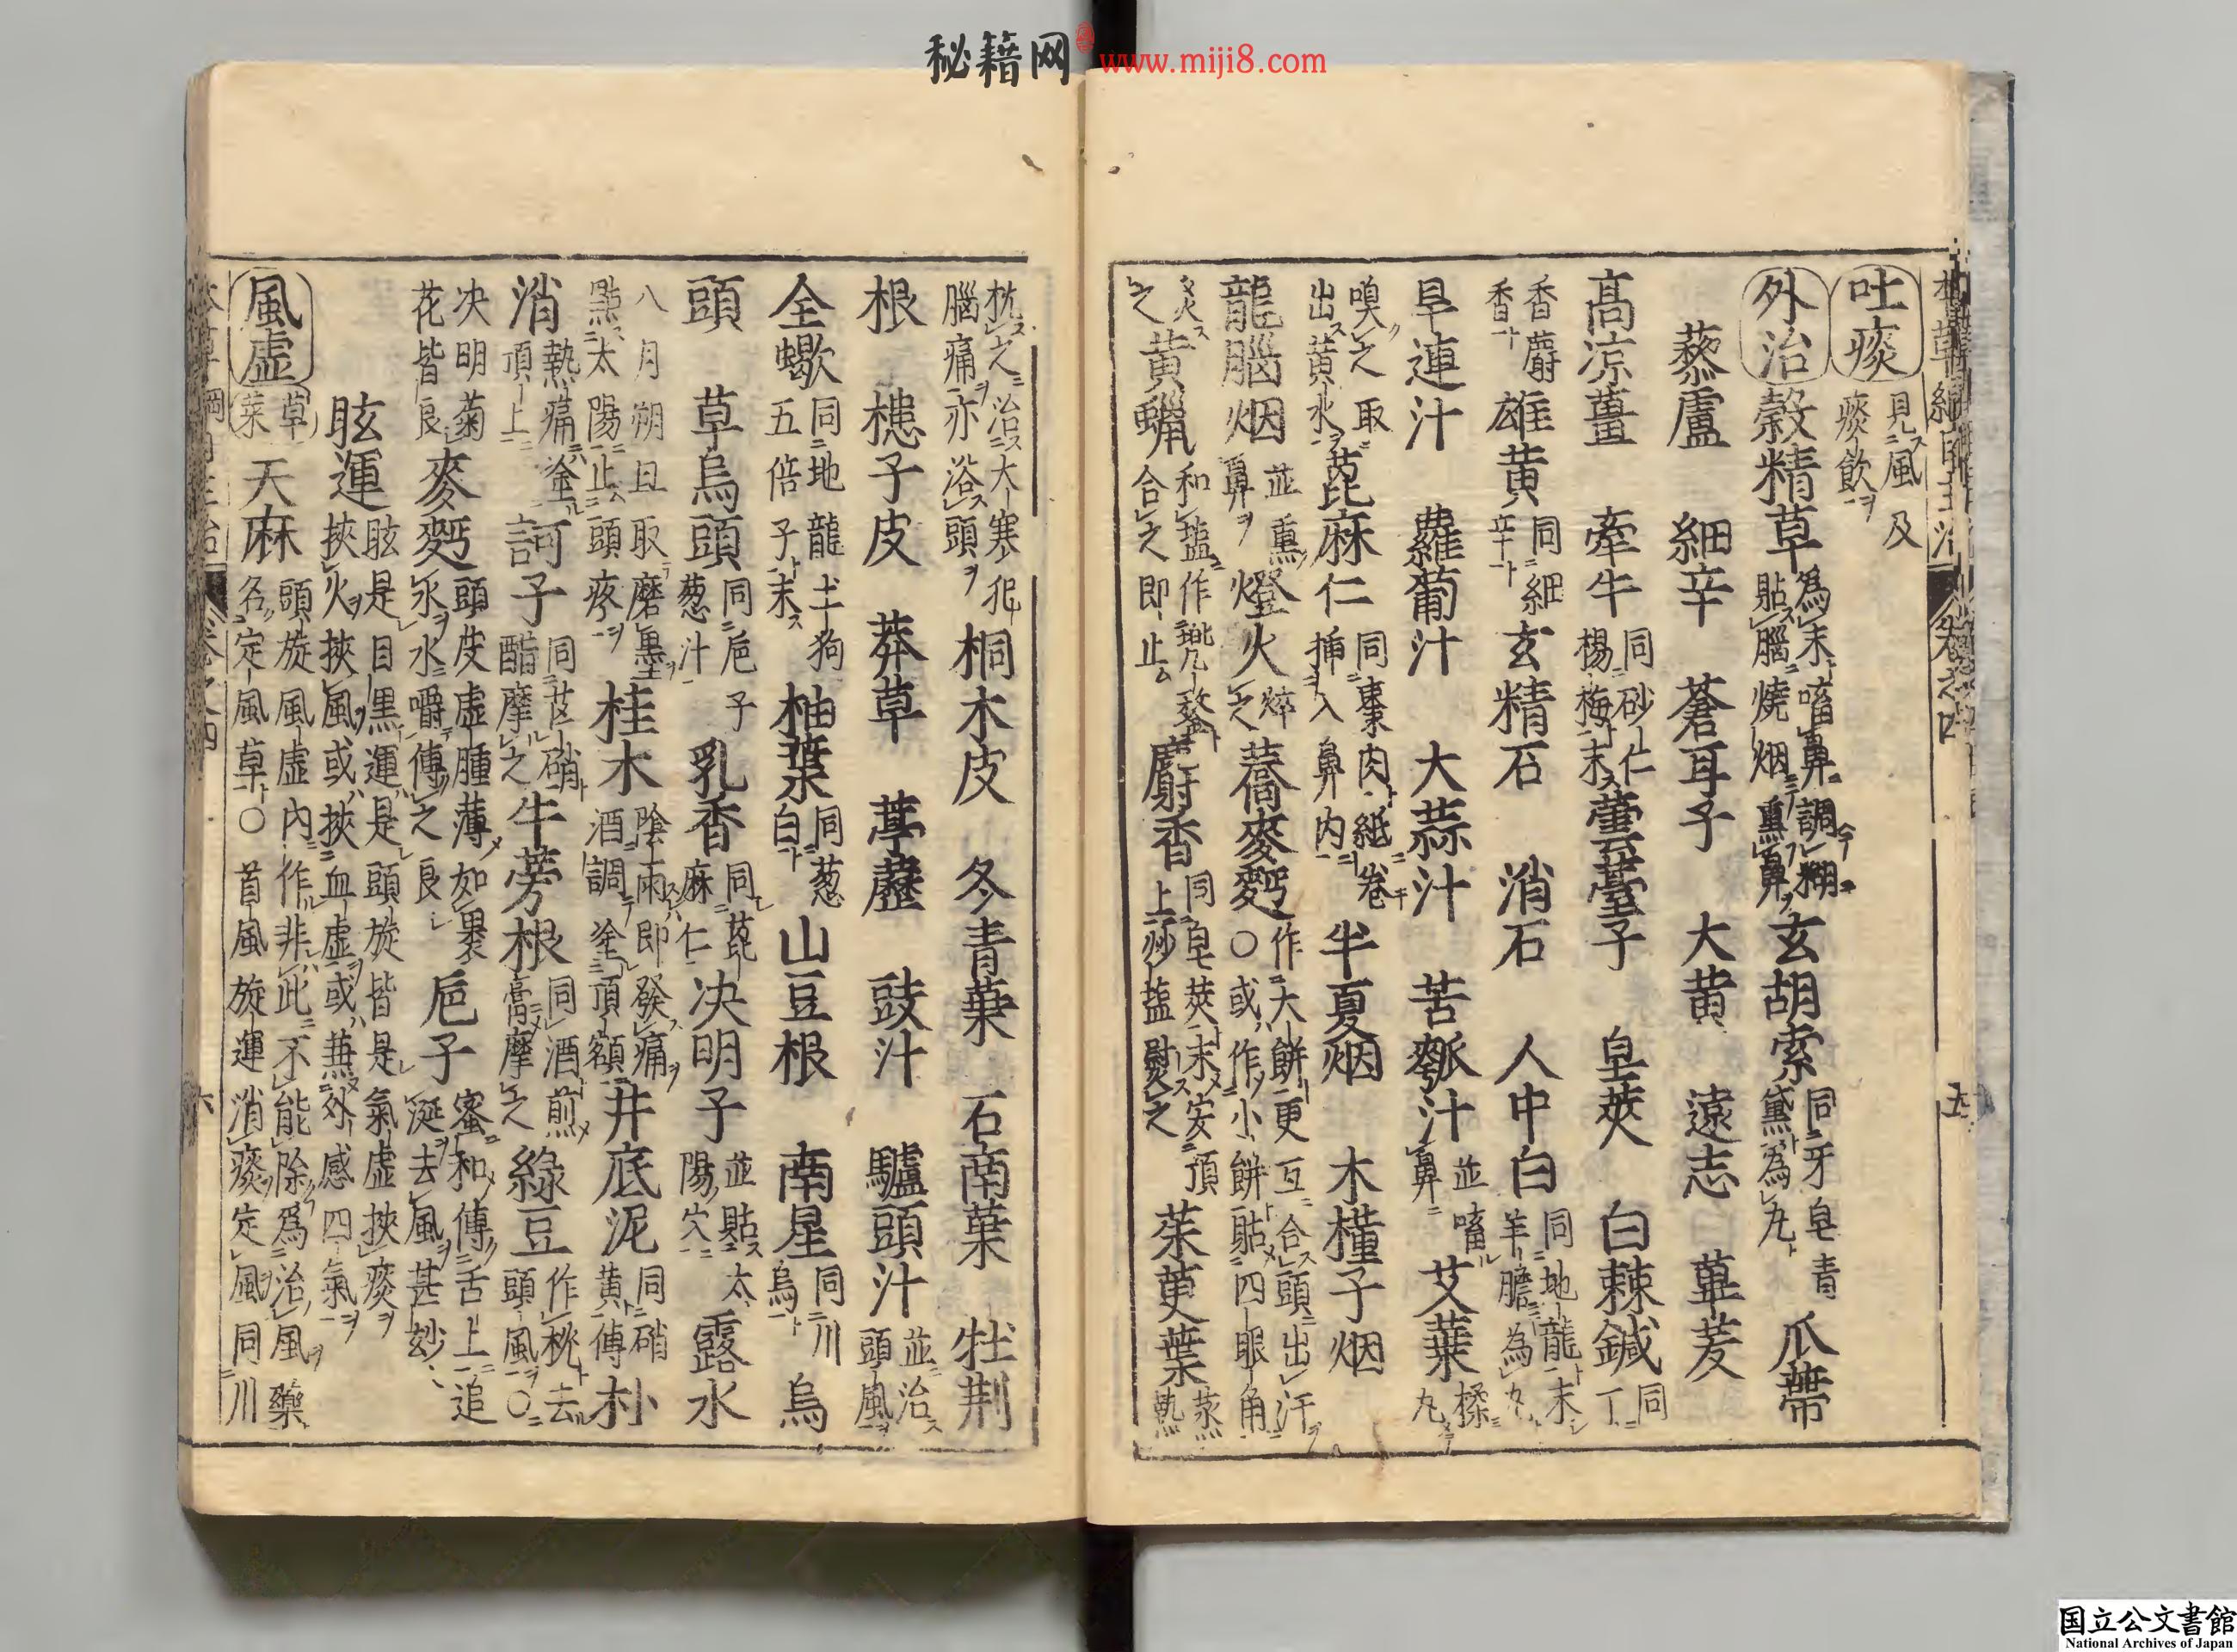 秘籍网 www.miji8.com
本草綱目主治 卷之四 五
吐痰 見風及痰飲
外治 穀精草 為末㗜鼻調糊貼腦燒烟熏鼻 玄胡索 同牙皂青黛為丸 瓜蒂
藜蘆 細辛 蒼耳子 大黄 遠志 蓽茇
高凉薑 牽牛 同砂仁楊梅末 蕓薹子 皂莢 白棘鍼 同丁
香麝香 雄黄 同細辛 玄精石 消石 人中白 同地龍末羊膽為丸
旱連汁 蘿蔔汁 大蒜汁 苦瓠汁 並㗜鼻 艾葉 揉丸
嗅之取出黄水 蓖麻仁 同棗肉紙卷挿入鼻内 半夏烟 木槿子烟
龍腦烟 並熏鼻 燈火 焠之 蕎麥麪 作大餅更互合頭出汗○或作小餅貼四眼角
灸之 黄蠟 和盐作兜鍪合之即止 麝香 同皂莢末安頂上炒盐熨之 茱萸葉 蒸熱
枕之治大寒犯腦痛亦浴頭 桐木皮 冬青葉 石南葉 牡荆
根 槵子皮 莽草 葶藶 豉汁 驢頭汁 並治頭風
全蠍 同地龍土狗五倍子末 柚葉 同葱白 山豆根 南星 同川烏 烏
頭 草烏頭 同巵子葱汁 乳香 同蓖麻仁 决明子 並貼太陽穴 露水
八月朔旦取磨墨點太陽止頭疼 桂木 陰雨即發痛酒調塗頂額 井底泥 同硝黄傅 朴
消 熱痛塗頂上 訶子 同芒硝醋摩之 牛蒡根 同酒煎膏摩之 綠豆 作枕去頭風○
决明菊花皆良 麥麪 頭皮虚腫薄如裹水嚼傅之良 巵子 蜜和傅舌上追涎去風甚妙
眩運 眩是目黑運是頭旋皆是氣虚挾痰挾火挾風或挾血虚或兼外感四氣
風虚 草菜 天麻 頭旋風虚内作非此不能除為治風藥名定風草○首風旋運消痰定風同川
本草綱目主治 卷之四 六
国立公文書館
National Archives of Japan